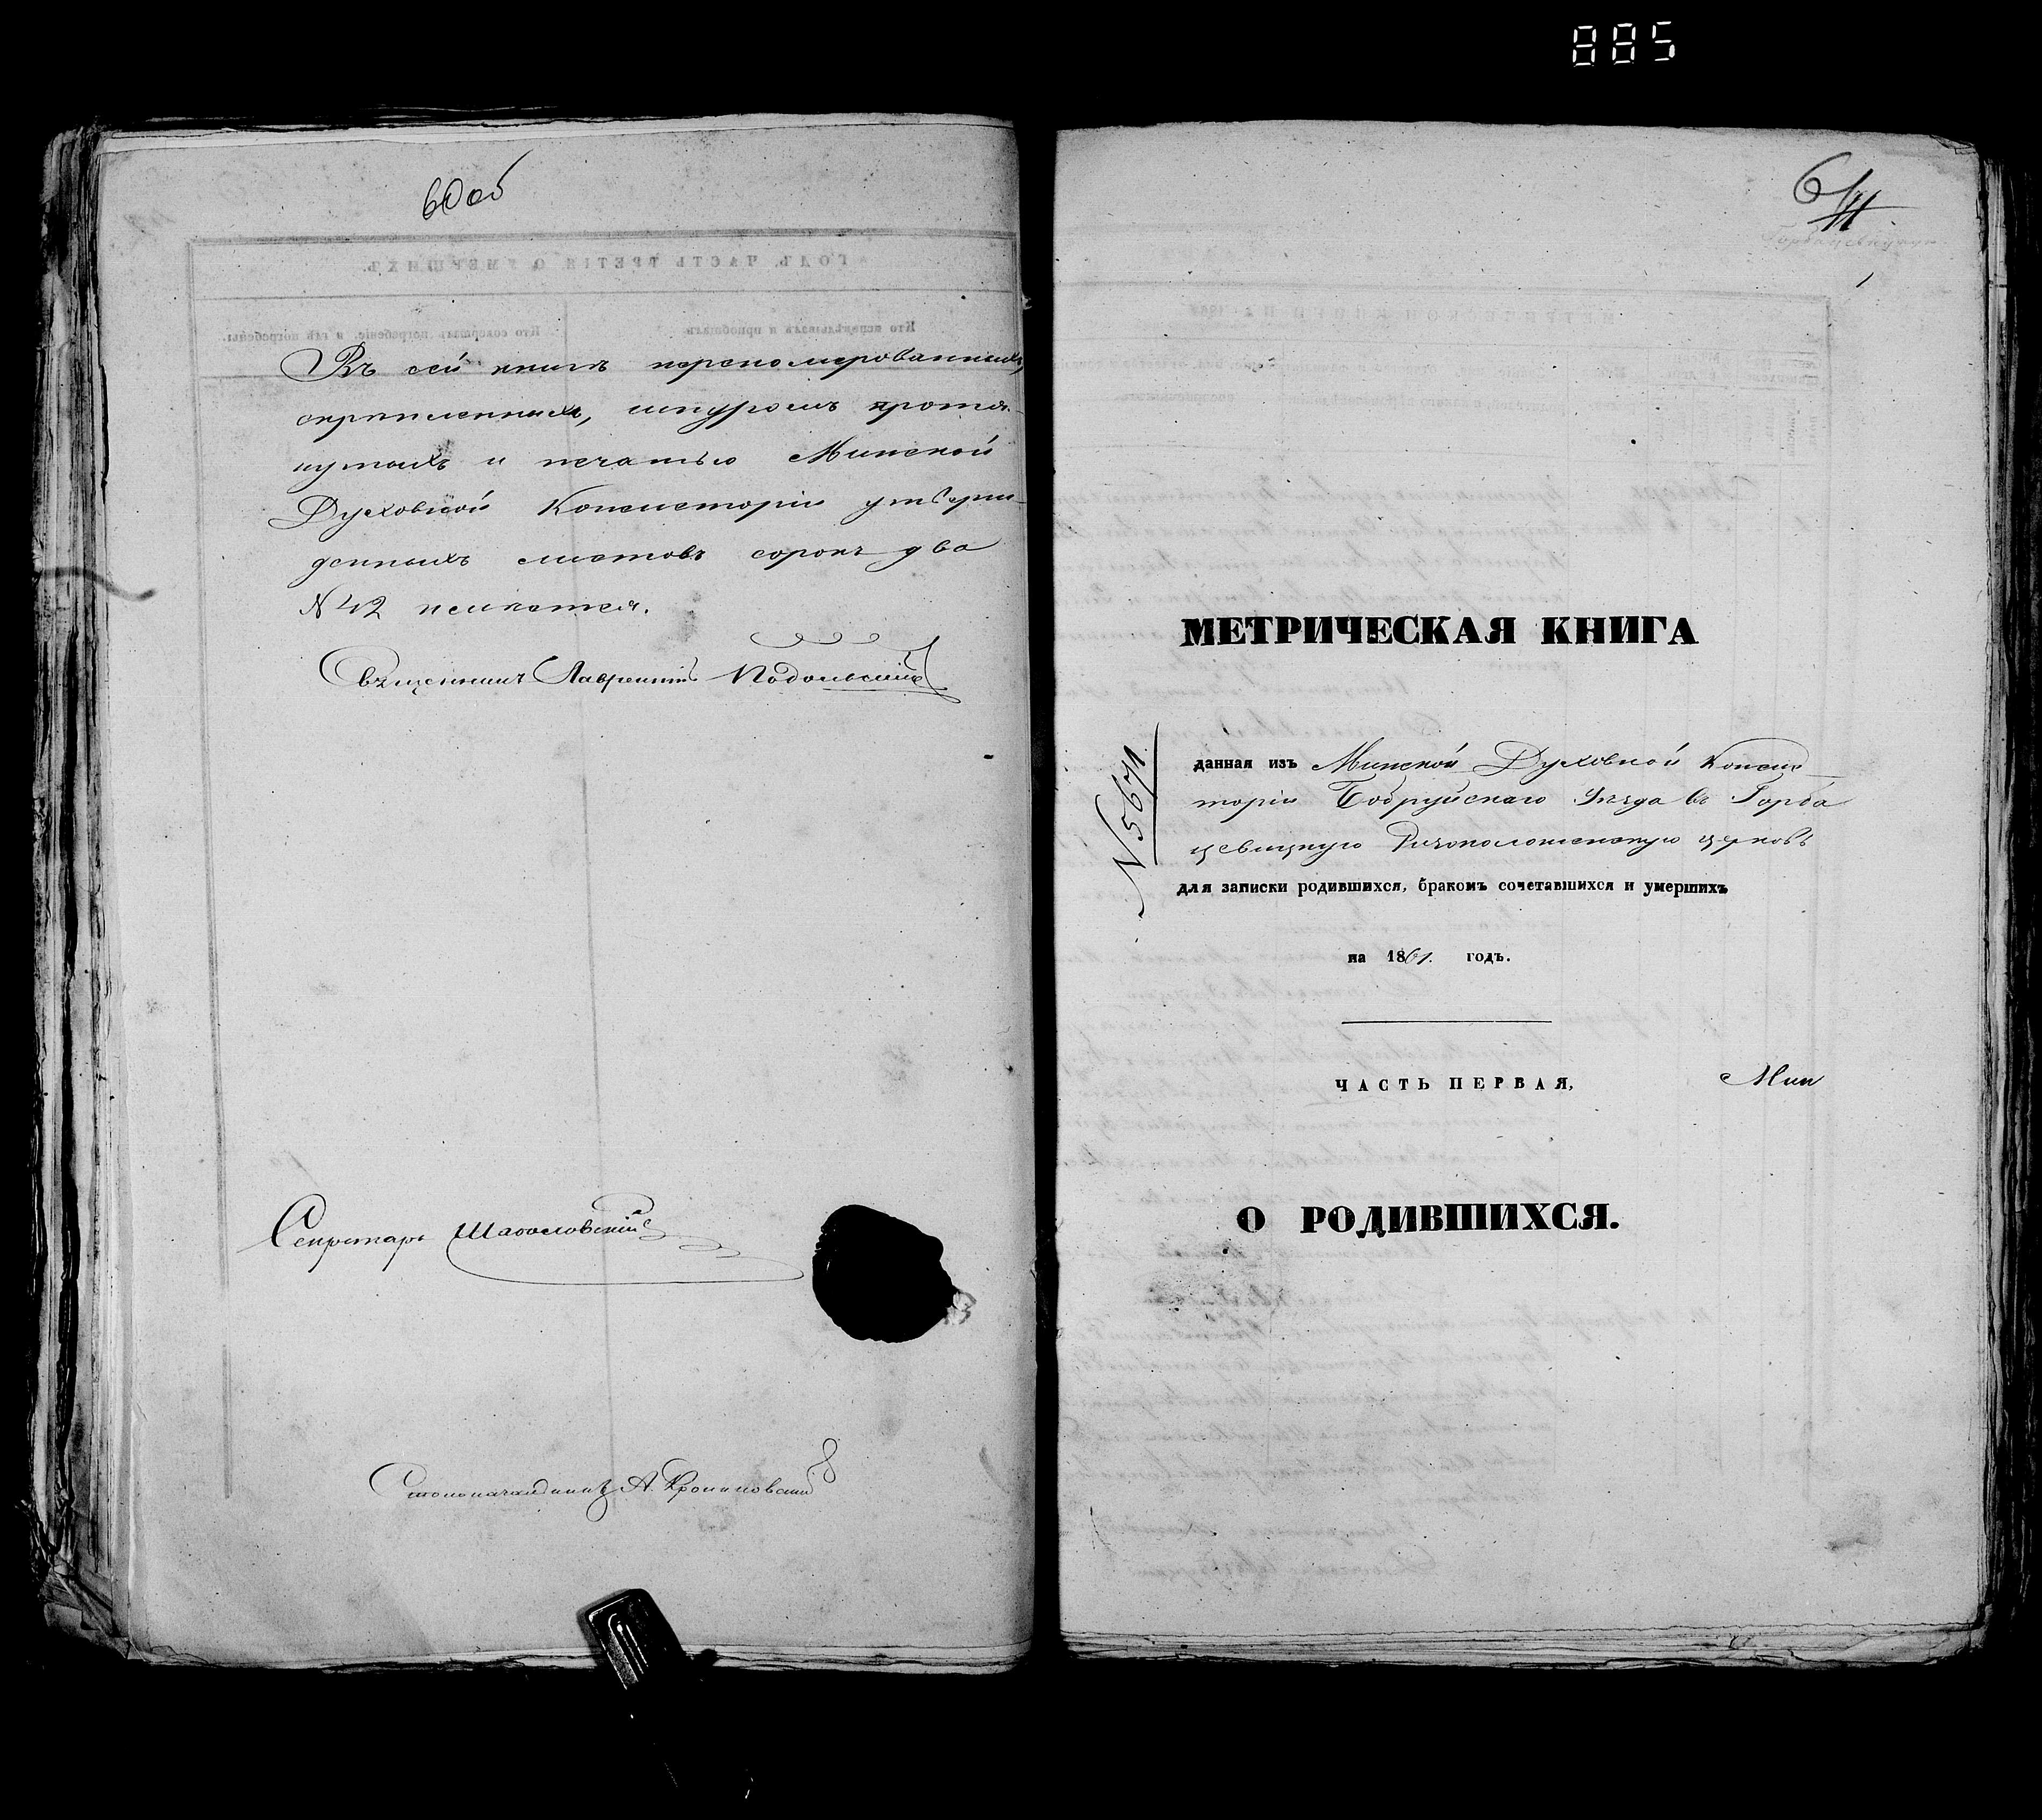 885
60 об
Въ сей книгѣ перенумерованныхъ,
скрѣпленныхъ, шнуромъ протя-
нутыхъ и печатью Минской
Духовной Консисторіи утверж-
денныхъ листовъ сорокъ два
N 42 полистея.
Священникъ Лаврентій Подольскій
Секретарь
Столоначальникъ А.
61
1
МЕТРИЧЕСКАЯ КНИГА
N 5671.
данная изъ Минской Духовной Консис
торіи Бобруйскаго Уѣзда въ Горба
цевицкую Ризоположенскую церковь
для записки родившихся, бракомъ сочетавшихся и умершихъ
на 1861. годъ.
ЧАСТЬ ПЕРВАЯ,
Мин
О РОДИВШИХСЯ.